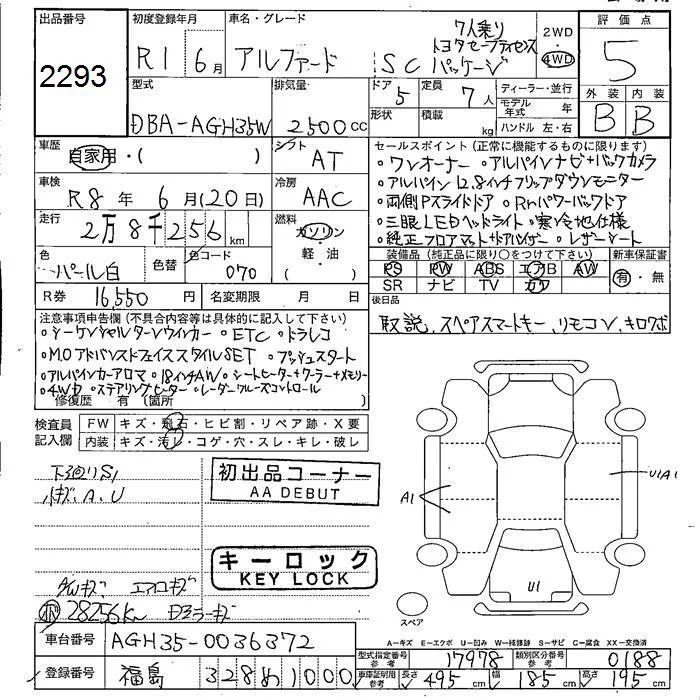 出品番号
2293
初度登録年月
R1 6月
車名・グレード
アルファード SC パッケージ
7人乗り
トヨタセーフティセンス
2WD
4WD
評価点
5
外装 内装
B B
型式
DBA-AGH35W
排気量
2500cc
ドア 5
形状
定員 7人
積載 kg
ディーラー・並行
モデル年式 年
ハンドル 左・右
車歴
自家用・( )
シフト
AT
車検
R8年 6月(20日)
冷房
AAC
走行
2万8千256km
燃料
ガソリン
軽・油
( )
色
パール白
色替
色コード
070
R券 16,550円
名変期限 月 日
セールスポイント(正常に機能するものに限ります)
○ワンオーナー ○アルパインナビ+バックカメラ
○アルパイン12.8インチフリップダウンモニター
○両側Pスライドドア ○Rrパワーバックドア
○三眼LEDヘッドライト ○寒冷地仕様
○純正フロアマット+ドアバイザー ○レザーシート
装備品(純正品に限り○をつけて下さい)
PS PW ABS エアB AW
SR ナビ TV カワ
新車保証書
有・無
後日品
取説、スペアスマートキー、リモコン、キロクボ
注意事項申告欄(不具合内容等は具体的に記入して下さい)
○シーケンシャルターンウィンカー ○ETC ○ドラレコ
○M.Oアドバンスドフェイススタイル SET ○プッシュスタート
○アルパインカーアロマ ○18インチAW ○シートヒーター+クーラー+メモリー
○4WD ○ステアリングヒーター ○レーダークルーズコントロール
修復歴 有(箇所 )
検査員記入欄
FW キズ・飛石・ヒビ割・リペア跡・X要
内装 キズ・汚レ・コゲ・穴・スレ・キレ・破レ
下廻りS1
初出品コーナー
AA DEBUT
キーロック
KEY LOCK
A1
U1A1
U1
スペア
AWキズ エアロキズ
28256km ドアミラーキズ
A-キズ E-エクボ U-凹み W-補修跡 S-サビ C-腐食 XX-交換済
車台番号 AGH35-0036372
型式指定番号 参考 17978
類別区分番号 参考 0188
登録番号 福島 328 め 1000
車庫証明用 参考 長さ 495cm 幅 185cm 高さ 195cm